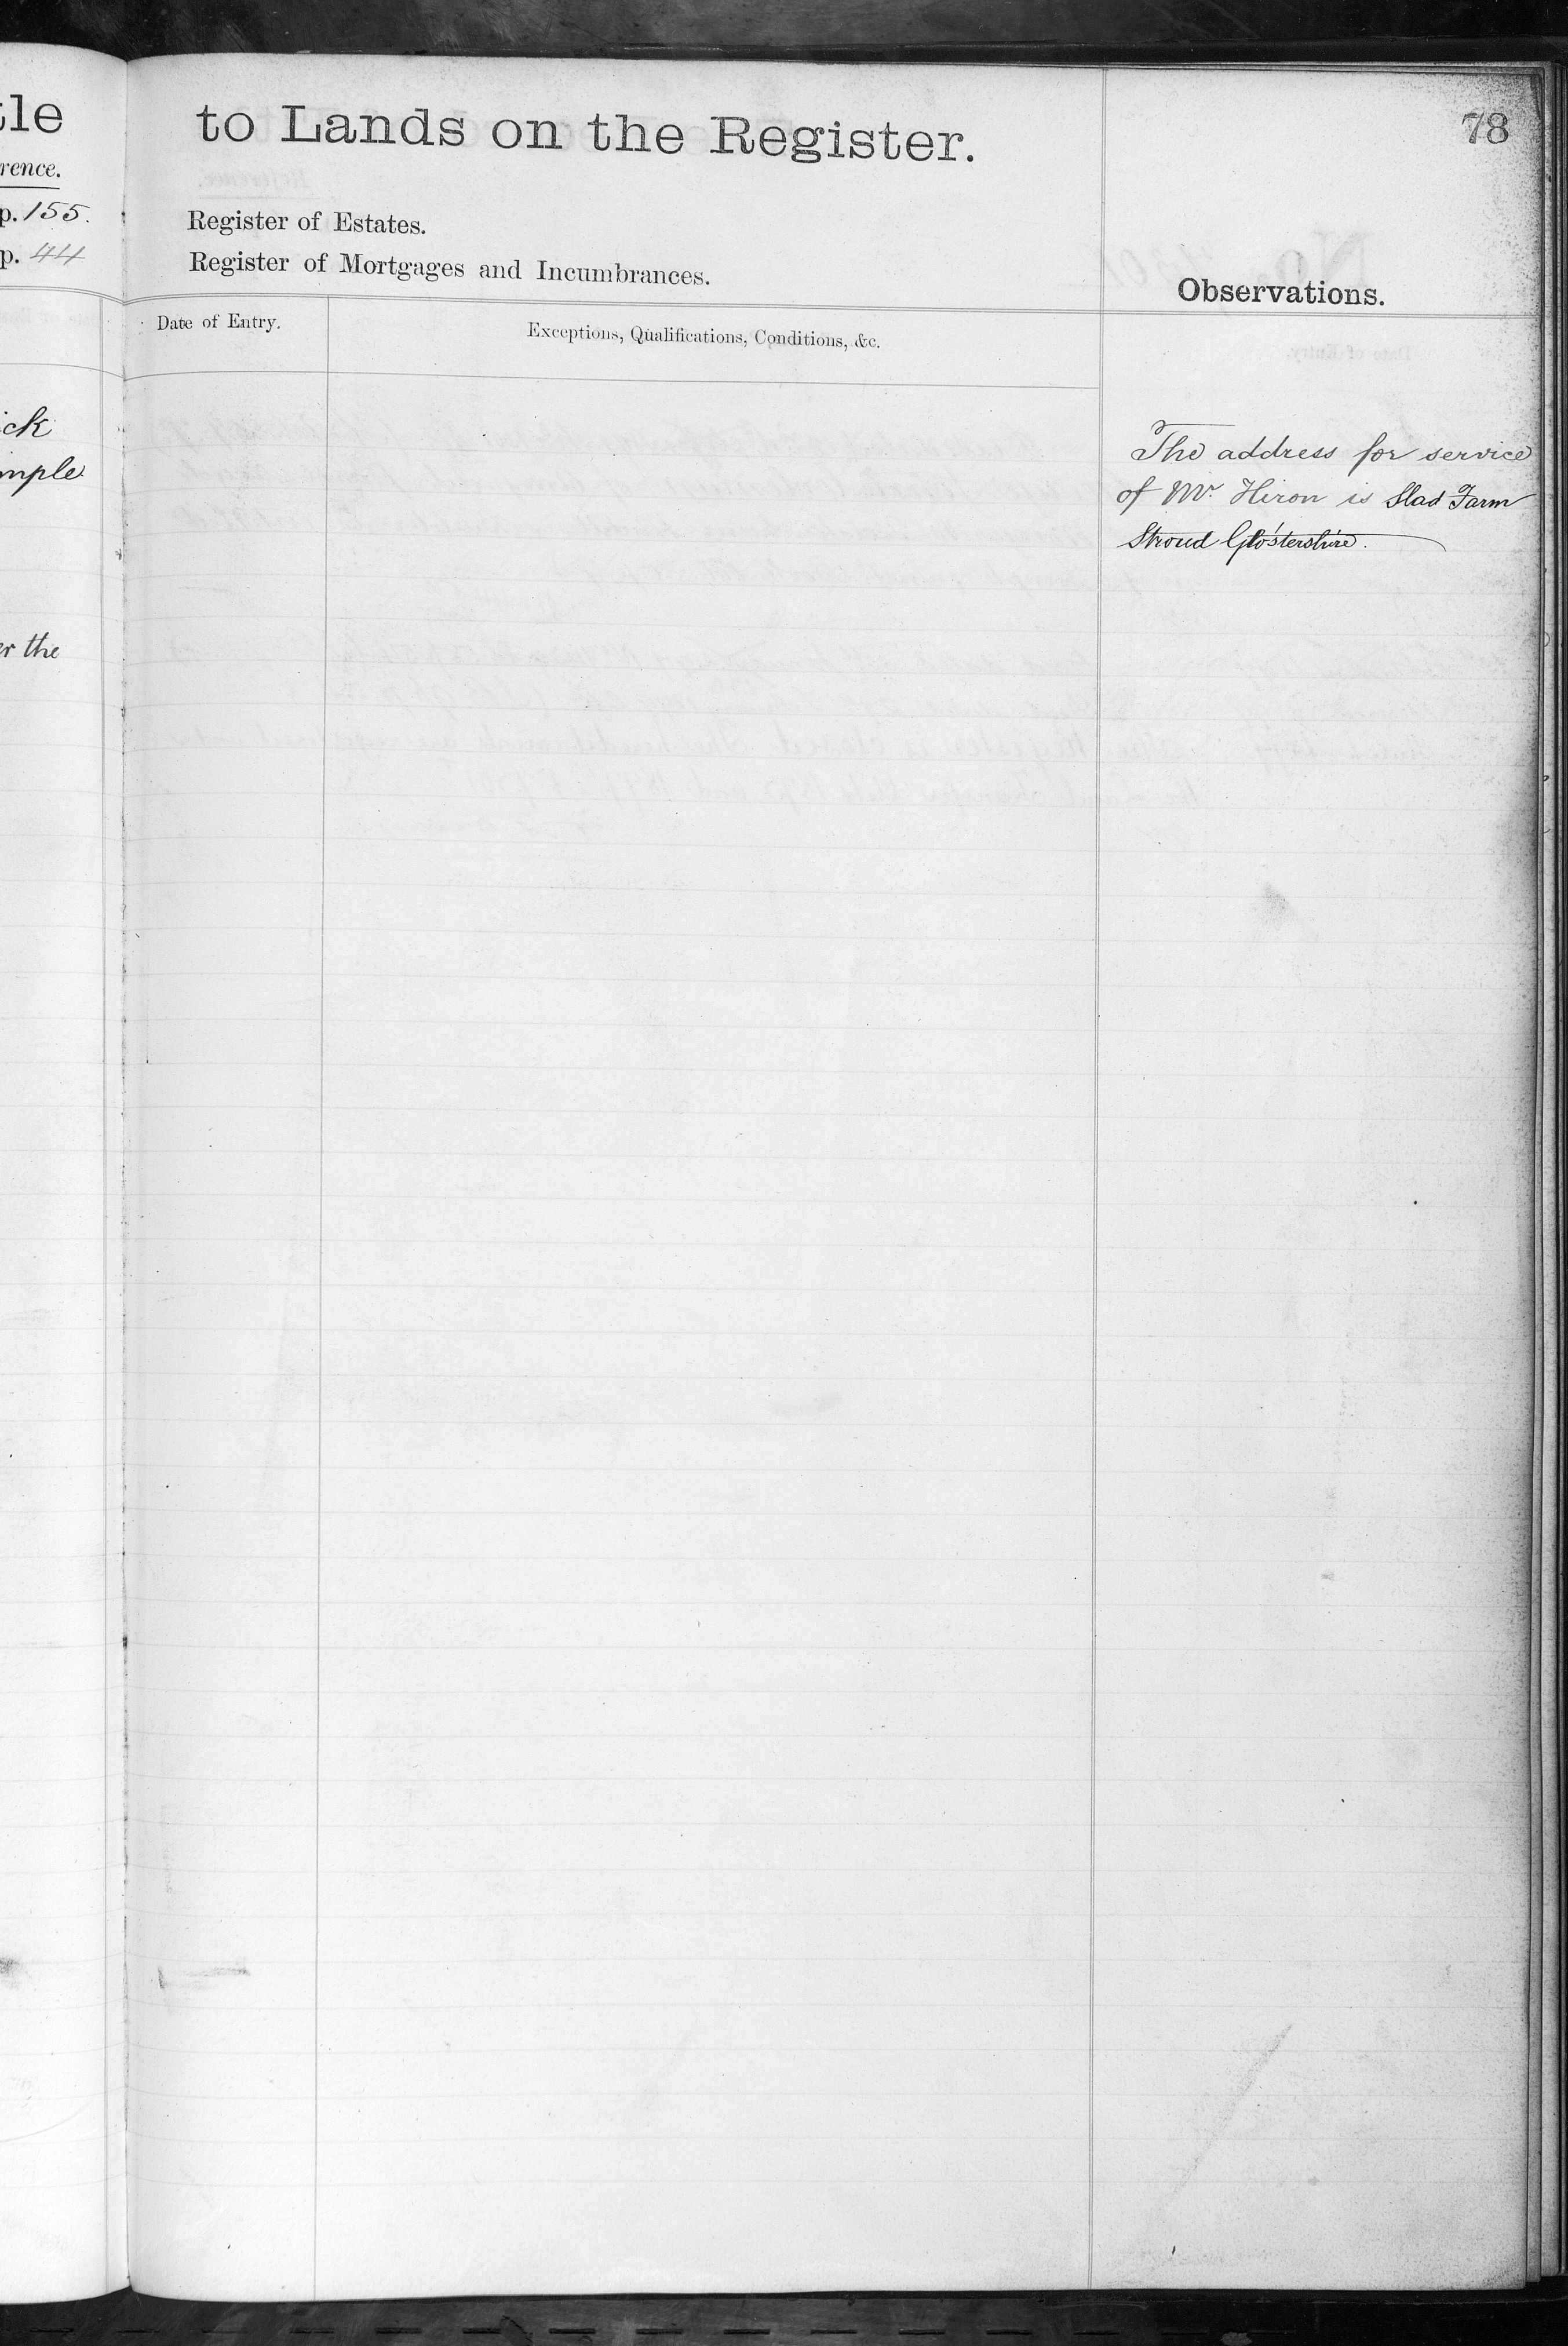 tle
rence.
p. 155.
p. 44
ick
imple
er the
to Lands on the Register.
78
Register of Estates.
Register of Mortgages and Incumbrances.
Observations.
Date of Entry.
Exceptions, Qualifications, Conditions, &c.
The address for service
of Mr. Hiron is Slad Farm
Stroud Glo'stershire.